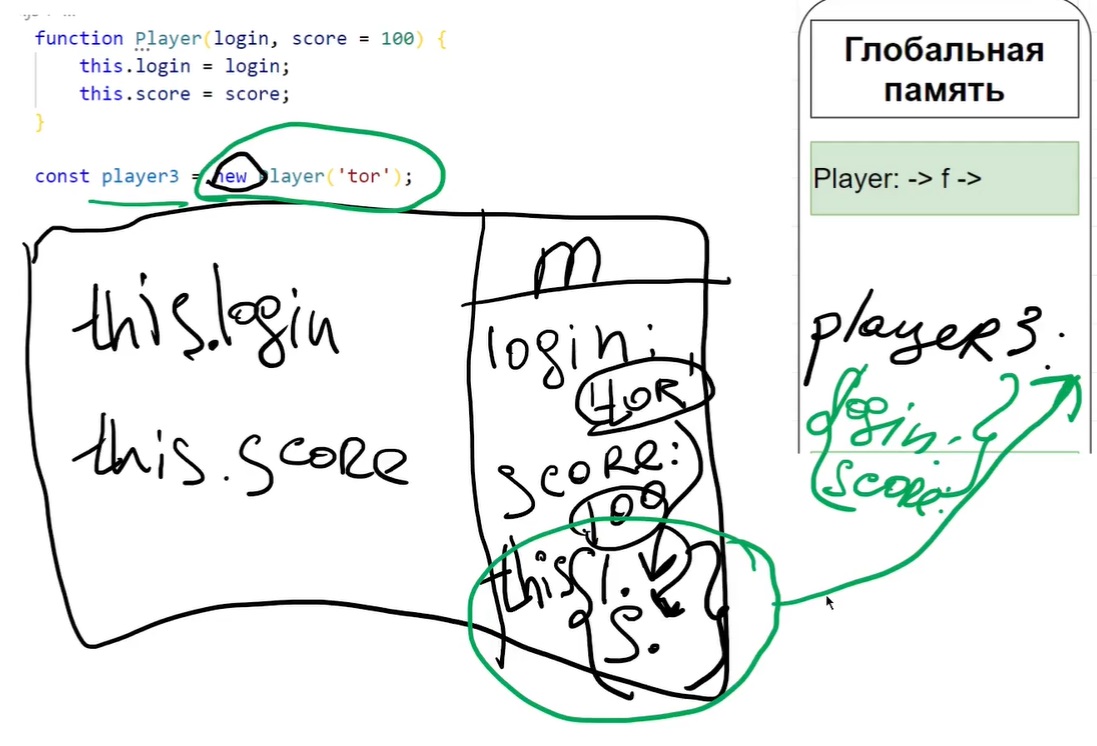 function Player(login, score = 100) {
this.login = login;
this.score = score;
}
const player3 = new Player('tor');
this.login
this.score
m
login:
tor
score:
100
this { l.
s. }
Глобальная
память
Player: -> f ->
player3:
{ login: }
score: